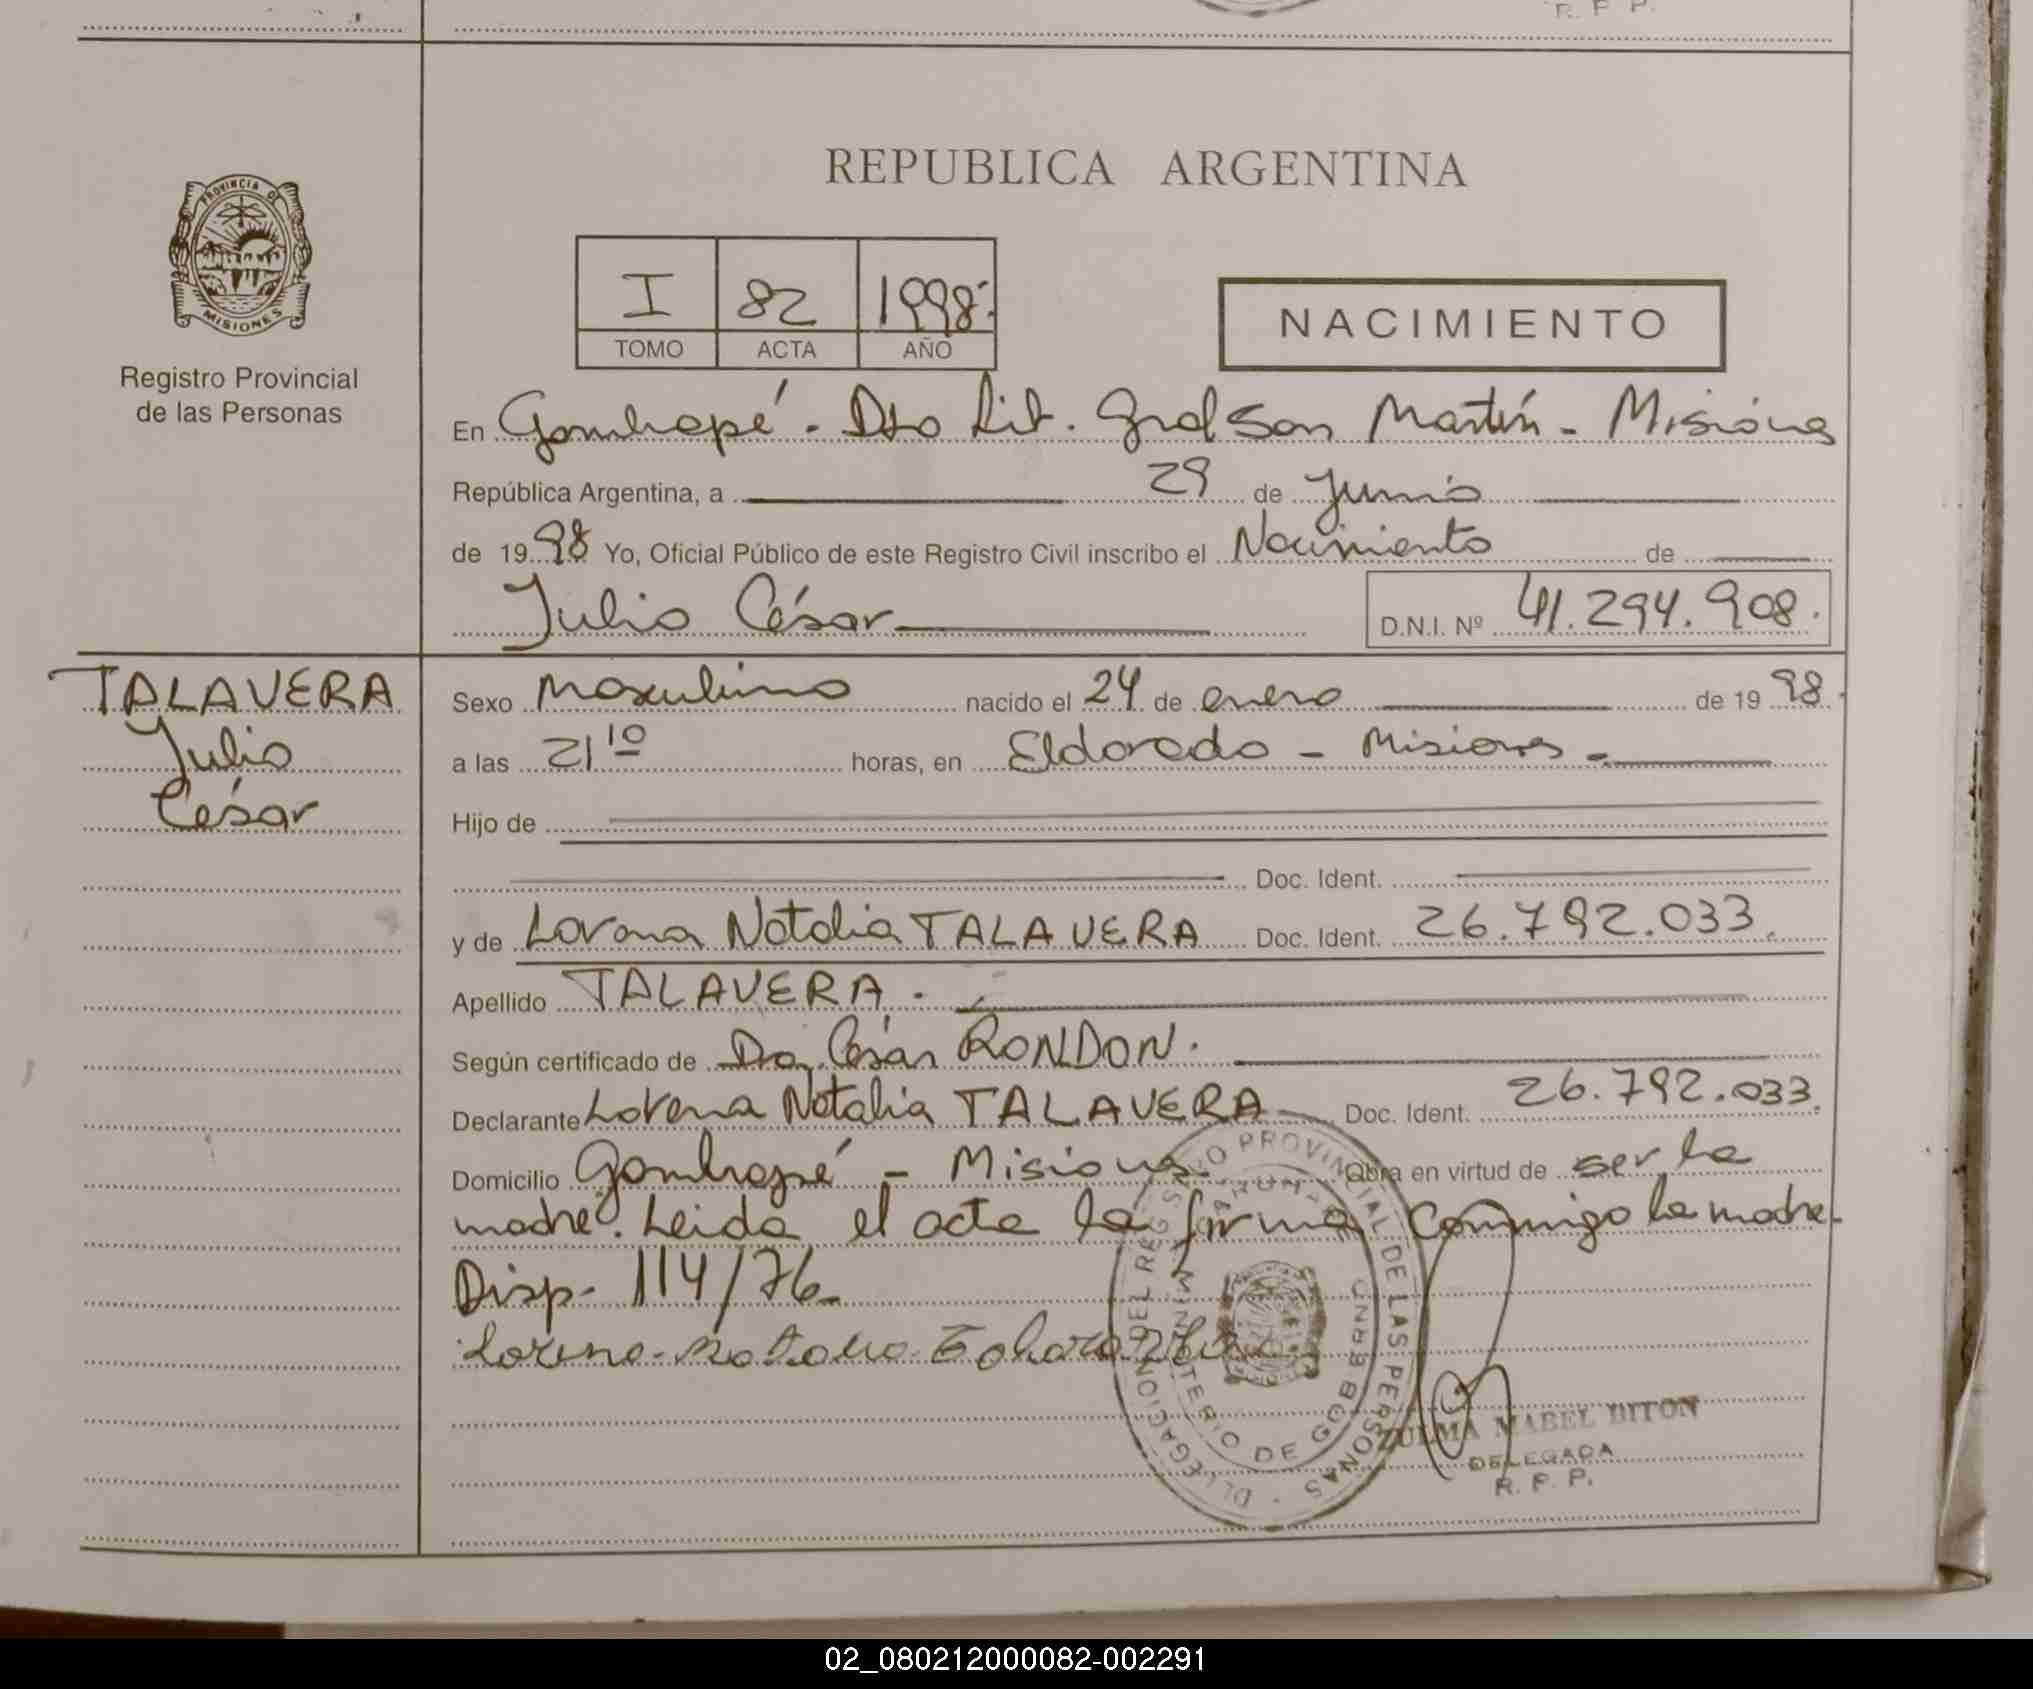 R. P. P.
PROVINCIA DE
MISIONES
Registro Provincial
de las Personas
REPUBLICA ARGENTINA
I 82 1998.
TOMO ACTA AÑO
NACIMIENTO
En Garuhapé - Dto Lib. Gral San Martín - Misiones
República Argentina, a 29 de Junio
de 19 98 Yo, Oficial Público de este Registro Civil inscribo el Nacimiento de
Julio César D.N.I. Nº 41.294.908.
TALAVERA
Julio
César
Sexo Masculino nacido el 24 de enero de 19 98.
a las 21 10 horas, en Eldorado - Misiones -
Hijo de
Doc. Ident.
y de Lorena Natalia TALAVERA Doc. Ident. 26.792.033.
Apellido TALAVERA.
Según certificado de Dr. César RONDON.
Declarante Lorena Natalia TALAVERA Doc. Ident. 26.792.033.
Domicilio Garuhapé - Misiones. Obra en virtud de ser la
madre. Leida el acta la firma conmigo la madre.
Disp. 114/76.
Lorena Natalia Talavera
DELEGACION DEL REGISTRO PROVINCIAL DE LAS PERSONAS
MINISTERIO DE GOBIERNO
ZULMA MABEL BITON
DELEGADA
R. P. P.
02_080212000082-002291